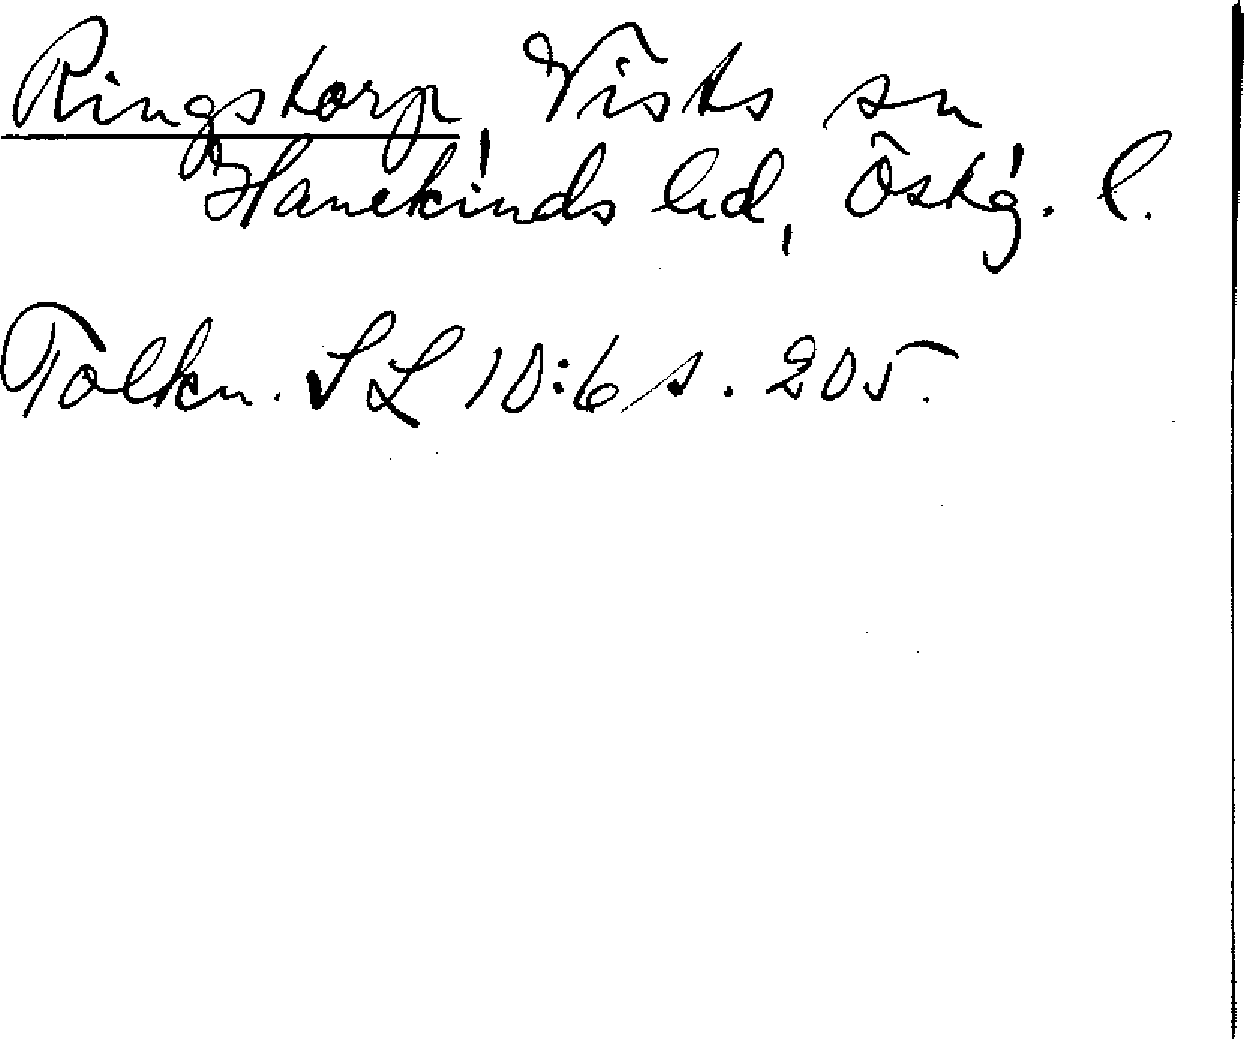 Ringstorp, Vists sn
Hanekinds hd, Östg. l.
Tolkn. SL 10:6 s. 205.